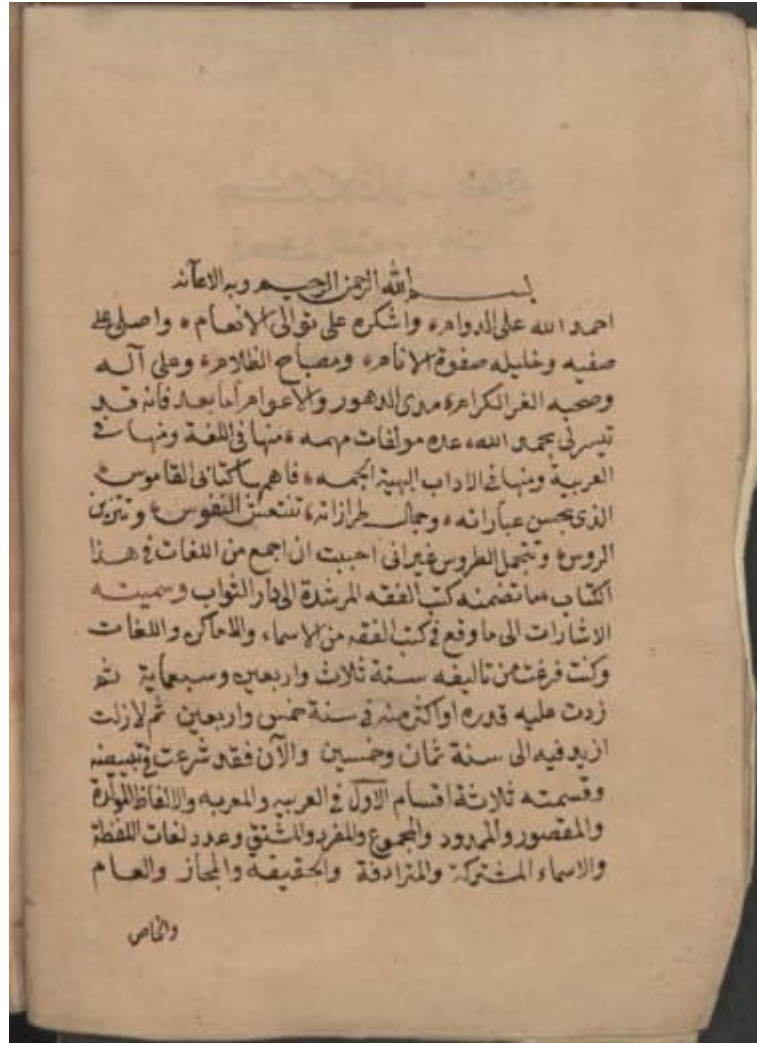 بسم الله الرحمن الرحيم وبه الاعانه
احمد الله على الدوام، واشكره على توالى الانعام، واصلى على
صفيه وخليله صفوة الانام، ومصباح الظلام، وعلى آله
وصحبه الغر الكرام، مدى الدهور والاعوام اما بعد فانه قد
تيسر لى بحمد الله، عدة مولفات مهمه، منها فى اللغة ومنها فى
العربية ومنها فى الاداب البهية الجمه، فاهمها كتابى القاموس،
الذى بحسن عباراته، وجمال طرازاته، تنتعش النفوس، وتتزين
الروس، وتتجمل الطروس غير انى احببت ان اجمع من اللغات فى هذا
الكتاب مما تضمنه كتب الفقه المرشدة الى دار الثواب وسميته
الاشارات الى ما وقع فى كتب الفقه من الاسماء والاماكن واللغات
وكنت فرغت من تاليفه سنة ثلاث واربعين وسبعماية ثم
زدت عليه قدره او اكثر منه فى سنة خمس واربعين ثم لازلت
ازيد فيه الى سنة ثمان وخمسين والآن فقد شرعت فى تبييضه
وقسمته ثلاثة اقسام الاول فى العربيه والمعربه والالفاظ المولدة
والمقصور والممدود والمجموع والمفرد والمشتق وعدد لغات اللفظة
والاسماء المشتركة والمترادفة والحقيقه والمجاز والعام
والخاص